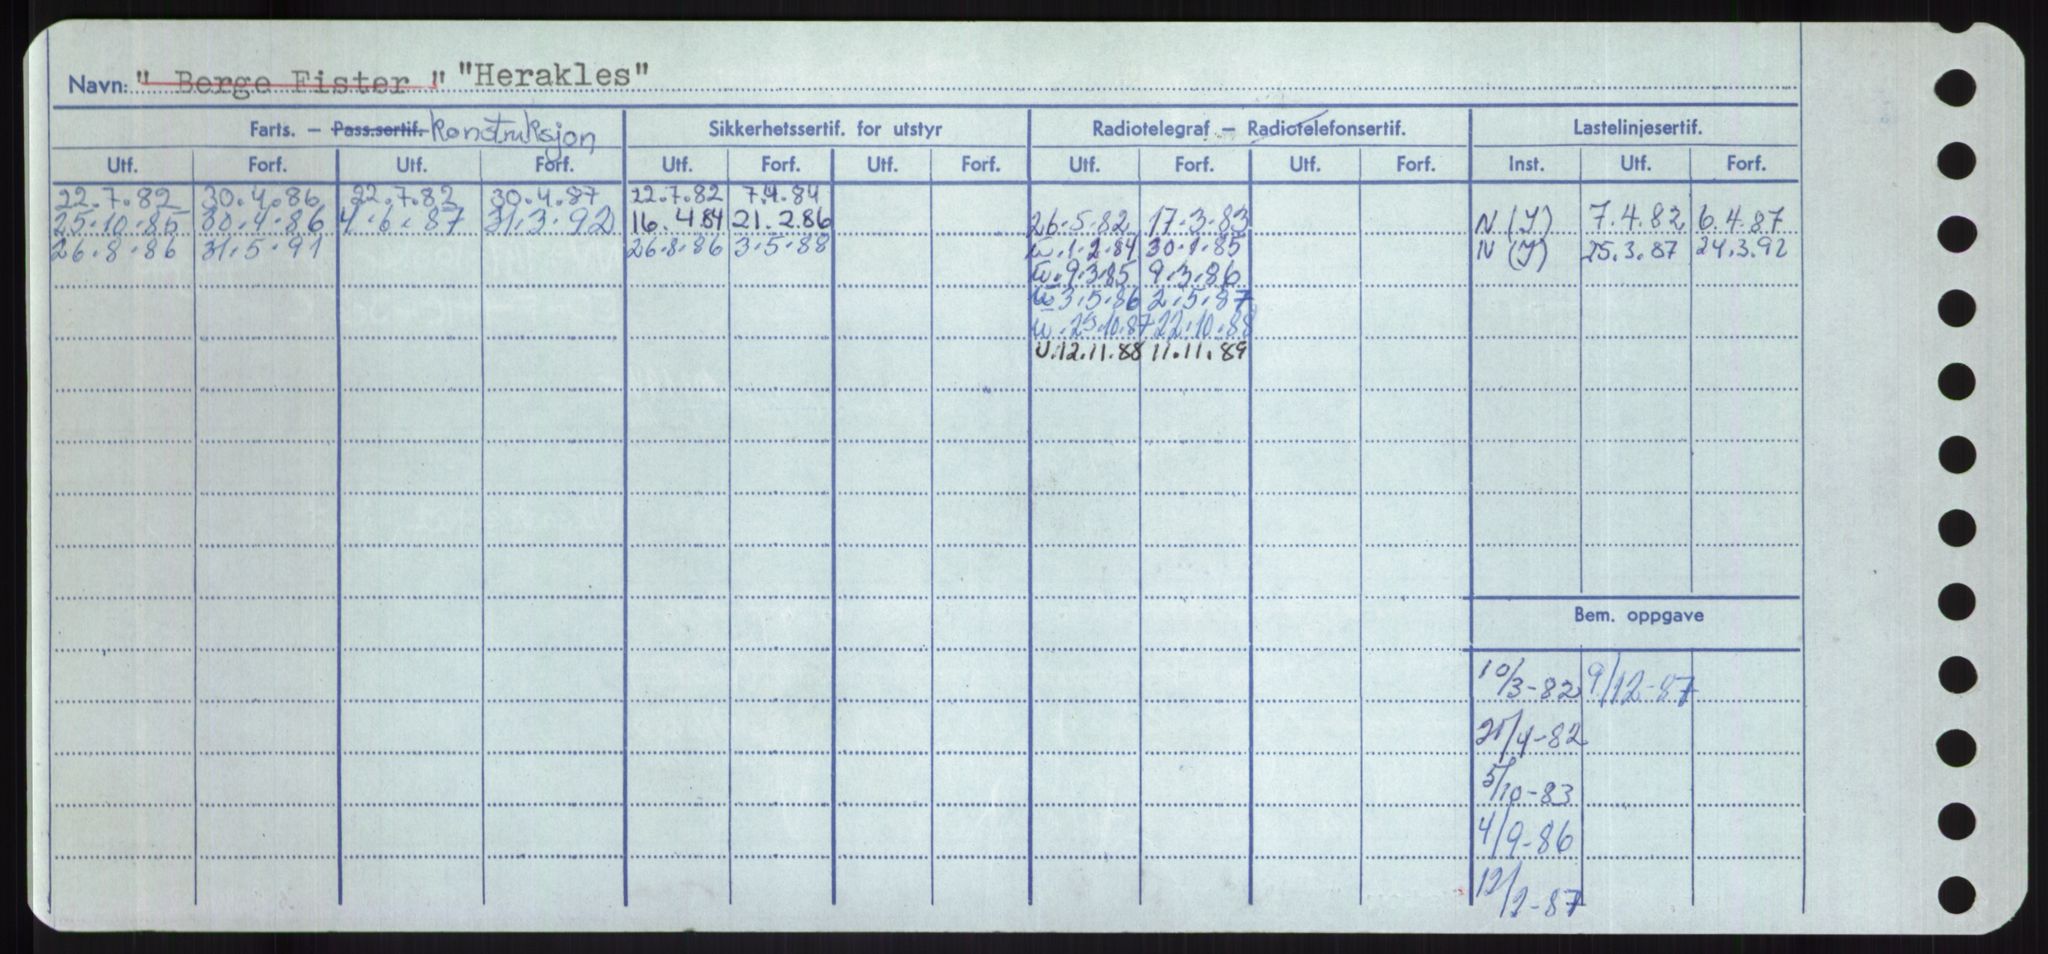 Navn: " Berge Fister " "Herakles"
Farts. – Pass.sertif. Konstruksjon Sikkerhetssertif. for utstyr Radiotelegraf – Radiotelefonsertif. Lastelinjesertif.
Utf. Forf. Utf. Forf. Utf. Forf. Utf. Forf. Utf. Forf. Utf. Forf. Inst. Utf. Forf.
22.7.82 30.4.86 22.7.82 30.4.87 22.7.82 7.4.84
25.10.85 30.4.86 4.6.87 31.3.92 16.4.84 21.2.86 26.5.82 17.3.83 N (Y) 7.4.82 6.4.87
26.8.86 31.5.91 26.8.86 3.5.88 u.1.2.84 30.1.85 N (Y) 25.3.87 24.3.92
u.9.3.85 9.3.86
u.3.5.86 2.5.87
u.23.10.87 22.10.88
U.12.11.88 11.11.89
Bem. oppgave
10/3-82 9/12-87
21/4-82
5/10-83
4/9-86
12/2-87